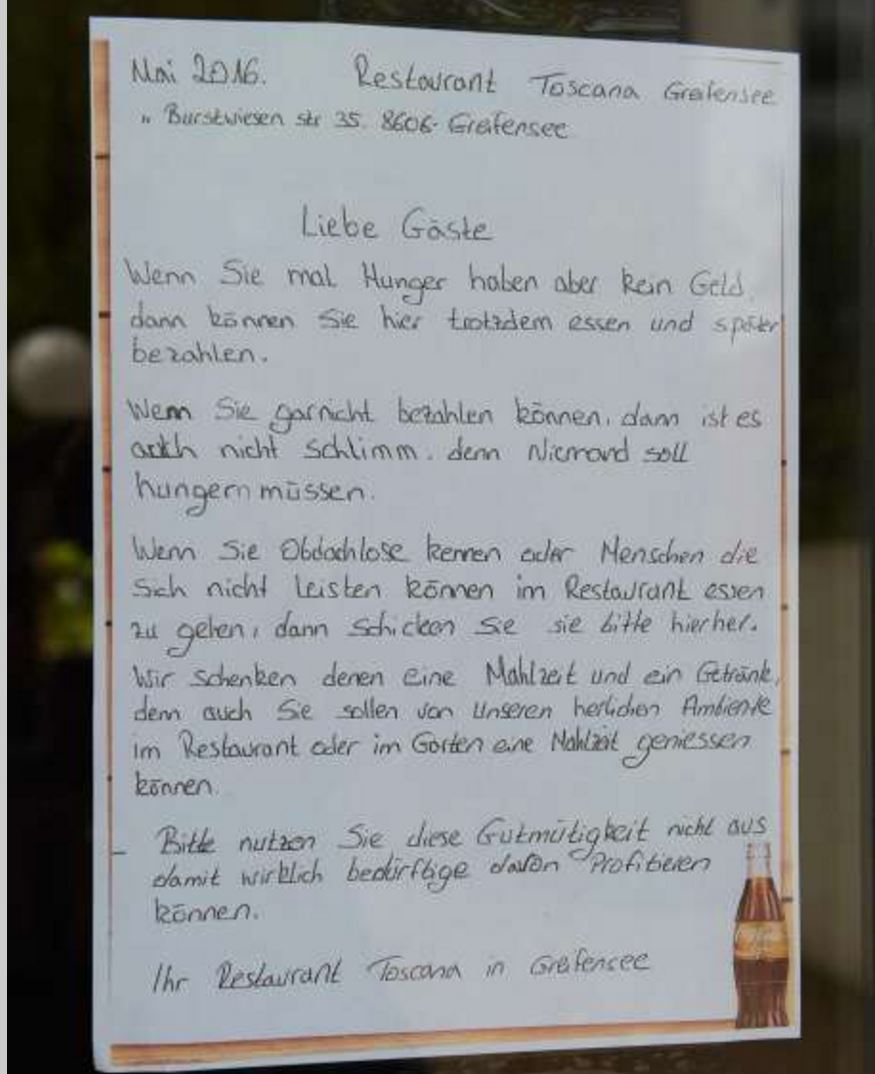 Mai 2016. Restaurant Toscana Greifensee
" Burstwiesen str 35. 8606- Greifensee
Liebe Gäste
Wenn Sie mal Hunger haben aber kein Geld,
dann können Sie hier trotzdem essen und später
bezahlen.
Wenn Sie garnicht bezahlen können, dann ist es
auch nicht schlimm. denn Niemand soll
hungern müssen.
Wenn Sie Obdachlose kennen oder Menschen die
Sich nicht Leisten können im Restaurant essen
zu gehen, dann schicken Sie sie bitte hierher.
Wir schenken denen eine Mahlzeit und ein Getränk,
denn auch Sie sollen von Unseren herlichen Ambiente
im Restaurant oder im Garten eine Mahlzeit geniessen
können.
Bitte nutzen Sie diese Gutmütigkeit nicht aus
damit wirklich bedürftige davon Profitieren
können.
Ihr Restaurant Toscana in Greifensee